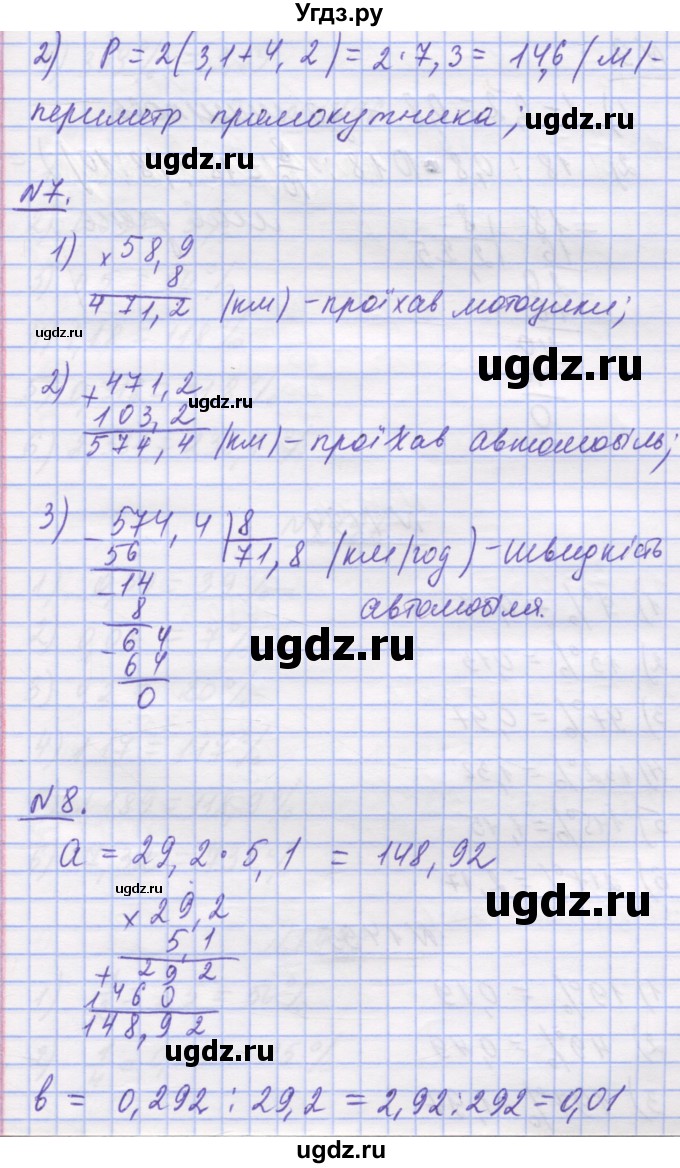 Угдз.ру
2) P = 2(3,1+4,2) = 2·7,3 = 14,6 (м)-
периметр прямокутника;
ugdz.ru
ugdz.ru
N7.
1) × 58,9
8
471,2 (км) - проїхав мотоцикл;
ugdz.ru
ugdz.ru
2) + 471,2
ugdz.ru
103,2
574,4 (км) - проїхав автомобіль;
ugdz.ru
3) - 574,4 | 8
56 71,8 (км/год) - швидкість
- 14 автомобіля.
8
ugdz.ru
- 64
64
0
N8.
a = 29,2·5,1 = 148,92
ugdz.ru
ugdz.ru
× 29,2
5,1
+ 292
1460
148,92
ugdz.ru
b = 0,292 : 29,2 = 2,92:292 = 0,01
ugdz.ru